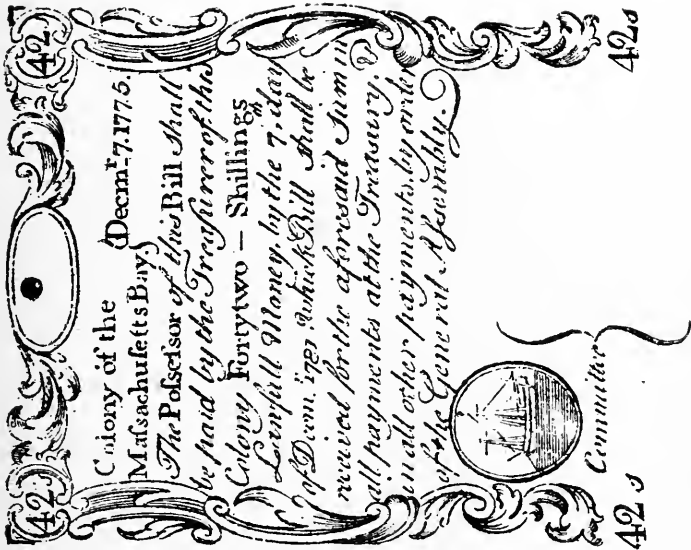 42 42
Colony of the
Maſsachuſetts Bay } Decmr. 7. 1775.
The Poſseſsor of this Bill shall
be paid by the Treaſurer of this
Colony Fortytwo — Shillings
Lawfull Money, by the 7th. day
of Decm. 1781 which Bill shall be
received for the aforesaid Sum in
all payments at the Treasury,
in all other payments by order
of the General Aſsembly.
Committee
42 s 42 s